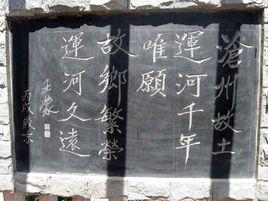 滄州故土
運河千年
唯願
故鄉繁榮
運河久遠
王蒙
丙戌暖冬